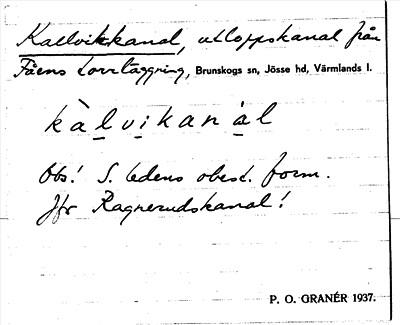 Kallvikkanal, utloppskanal från
Fåens torrläggning, Brunskogs sn, Jösse hd, Värmlands l.
kàlvikanàl
Obs! S. ledens obest. form.
Jfr Ragnerudskanal!
P. O. GRANÉR 1937.